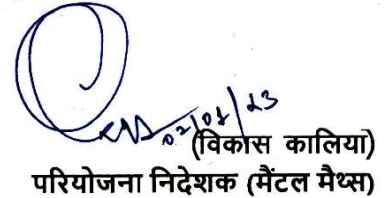 02/01/23
(विकास कालिया)
परियोजना निदेशक (मैंटल मैथ्स)